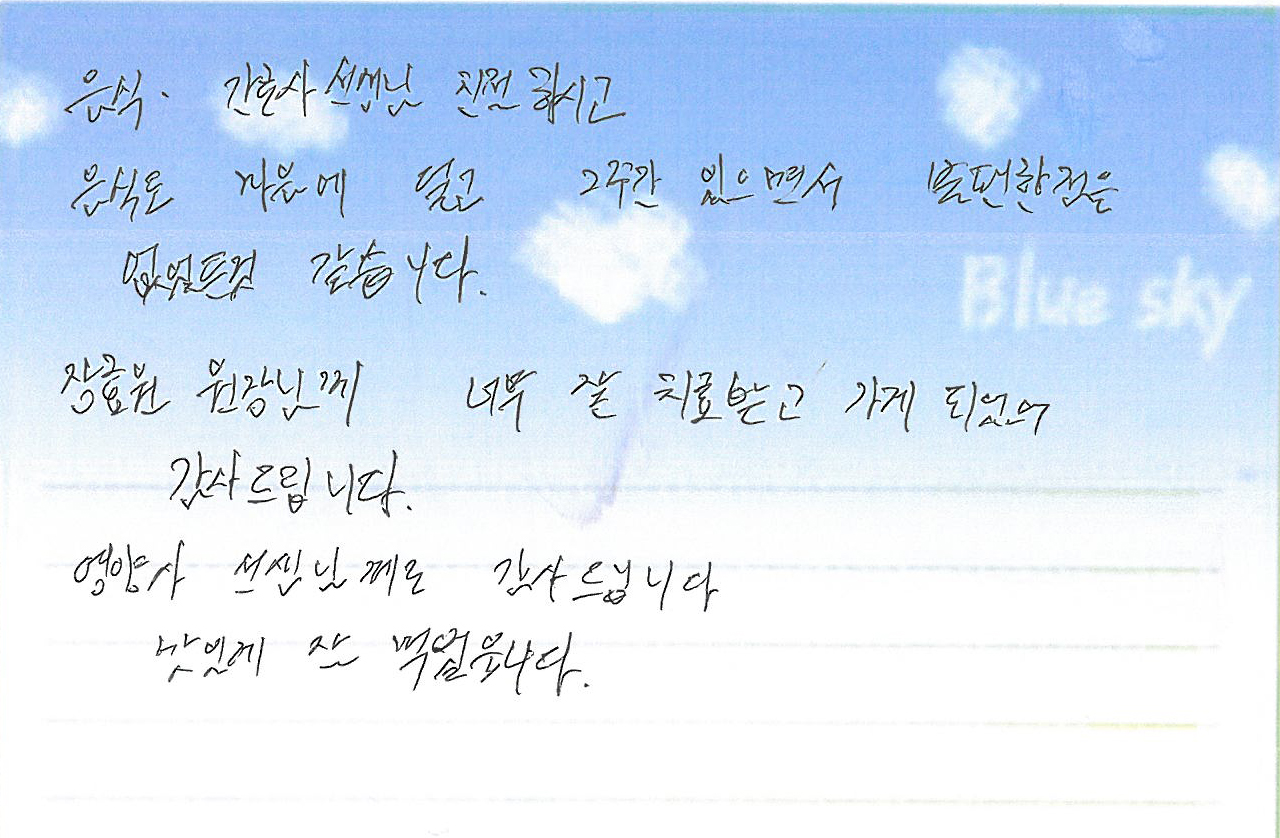 음식. 간호사 선생님 친절하시고
음식도 마음에 들고 2주간 있으면서 불편한점은
없었든것 같습니다.
Blue sky
장효원 원장님께 너무 잘 치료받고 가게 되었어
감사드립니다.
영양사 선생님께도 감사드립니다
맛있게 잘 먹었읍니다.